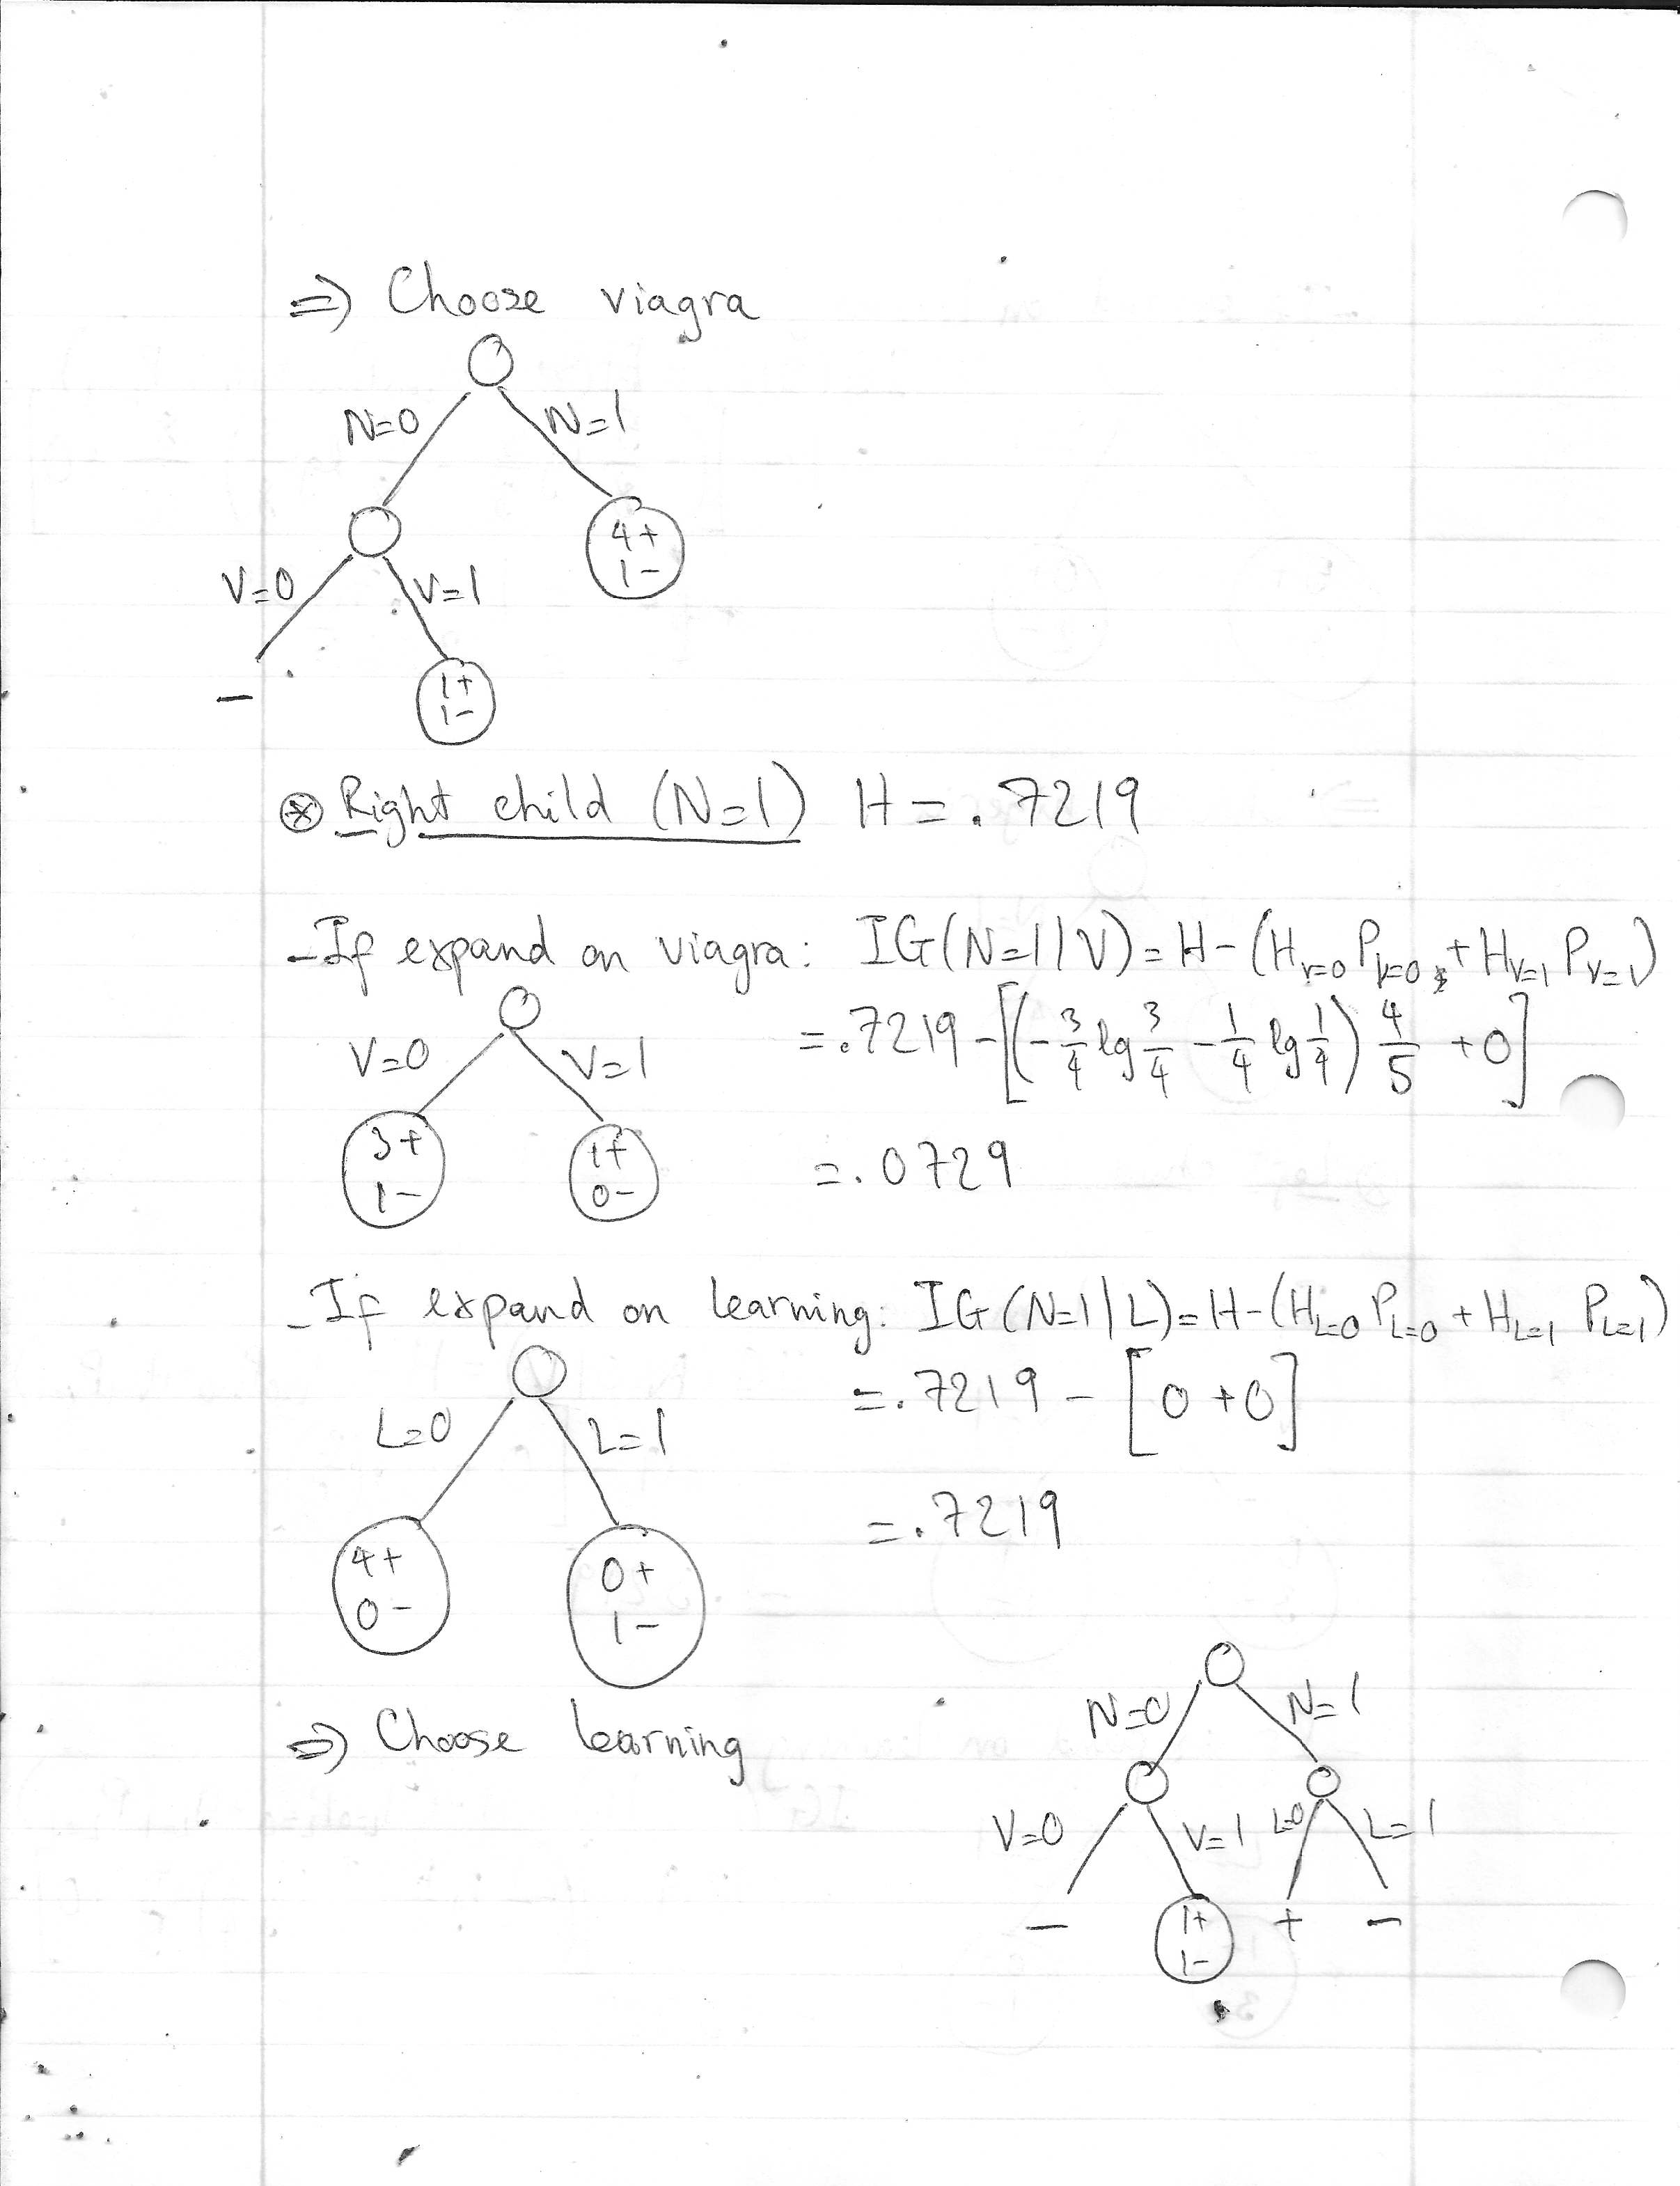 ⇒ Choose viagra
N=0 N=1
4+
1-
V=0 V=1
-
1+
1-
⊛ Right child (N=1) H = .7219
- If expand on viagra: IG(N=1|V) = H - (H_{V=0} P_{V=0} + H_{V=1} P_{V=1})
V=0 V=1
= .7219 - [(-3/4 lg 3/4 - 1/4 lg 1/4) 4/5 + 0]
3+ 1+
1- 0-
= .0729
- If expand on learning: IG(N=1|L) = H - (H_{L=0} P_{L=0} + H_{L=1} P_{L=1})
= .7219 - [0 + 0]
L=0 L=1
= .7219
4+ 0+
0- 1-
⇒ Choose learning
N=0 N=1
V=0 V=1 L=0 L=1
- 1+ + -
1-